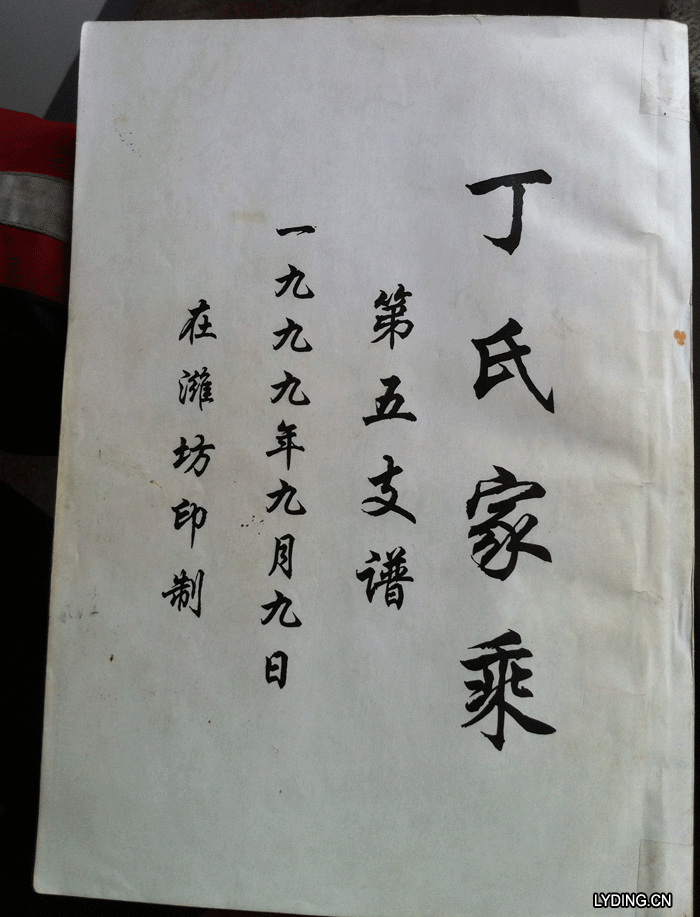 丁氏家乘
第五支谱
一九九九年九月九日
在潍坊印制
LYDING.CN